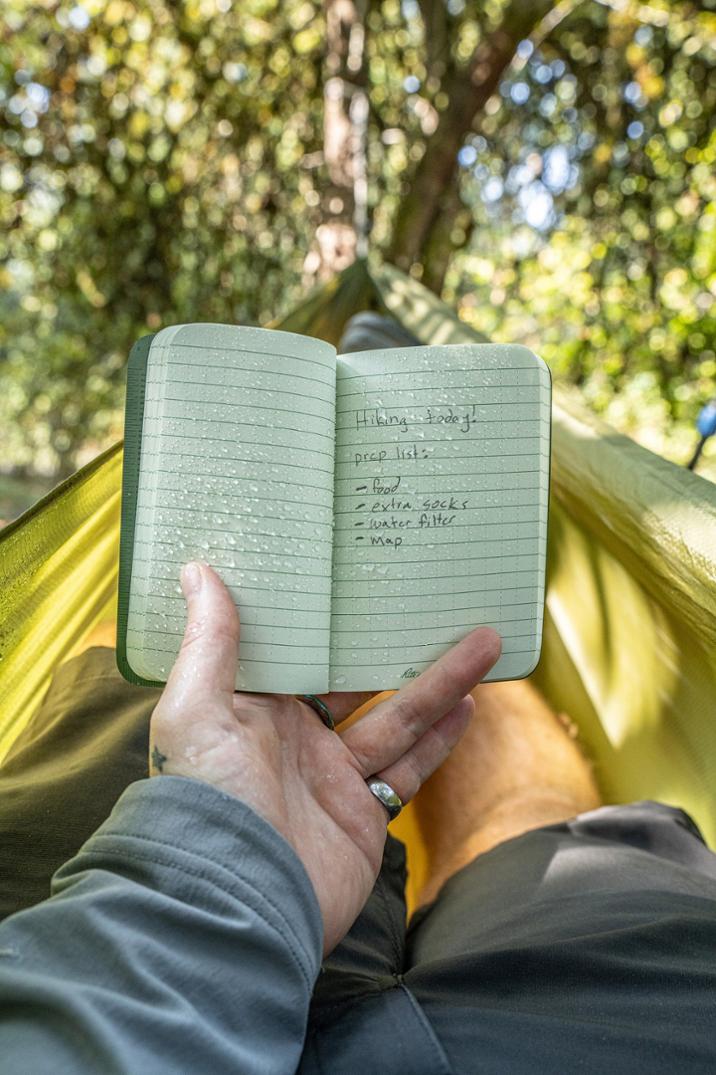 Hiking today!
prep list:
- food
- extra socks
- water filter
- map